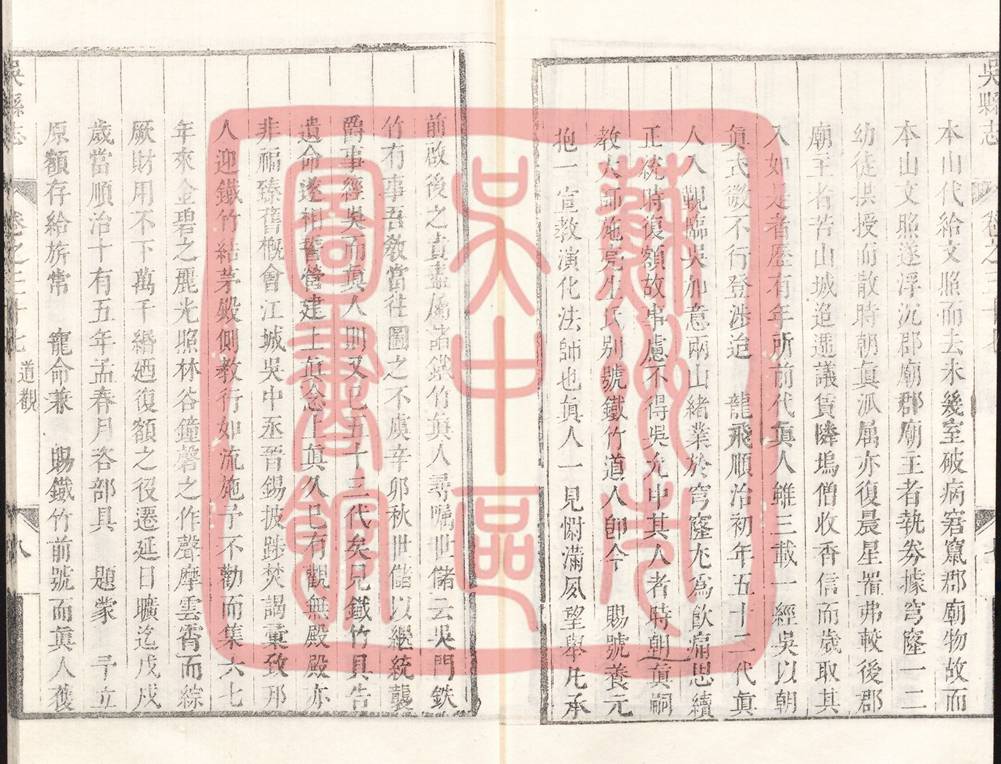 吳縣志
本山代給文照而去未幾室破病窘竄郡廟物故而
本山文照遂浮沉郡廟郡廟王者執券據穹窿一二
幼徒拱授而散時朝眞派属亦復晨星畧弗較後郡
廟主者苦山城迢遞議賃隣塢僧收香信而歲取其
入如是者歷有年所前代眞人雖三載一經吳以朝
眞式微不行登涉迨　龍飛順治初年五十二代眞
人入覲臨吳加意兩山緒業於穹窿尤爲飲痛思續
正統時復額故事慮不得吳尤中其人者時朝眞嗣
教大師施亮生氏別號鐵竹道人卽今　賜號養元
抱一宣教演化法師也眞人一見慰滿夙望舉凡承
前啟後之責盡屬諸鐵竹眞人尋囑世儲云吳門鉄
竹有事吾敎當往圖之不虞辛卯秋世儲以繼統襲
爵事經吳而眞人則又已五十三代矣見鐵竹具告
遺命遂相誓營建上眞念上眞久已有觀無殿殿亦
非編臻舊概會江城吳中丞晉錫披跡焚謁彙致邢
人迎鐵竹結茅殿側教行如流施予不勸而集六七
年來金碧之麗光照林谷鐘磬之作聲摩雲霄而綜
厥財用不下萬千緡廼復額之役遷延日曠迄戊戌
歲當順治十有五年孟春月咨部具　題蒙　予立
原額存給旂常　寵命兼　賜鐵竹前號而眞人復
吳縣志
卷之三十七
道觀
八
蘇州市
吳中區
圖書館